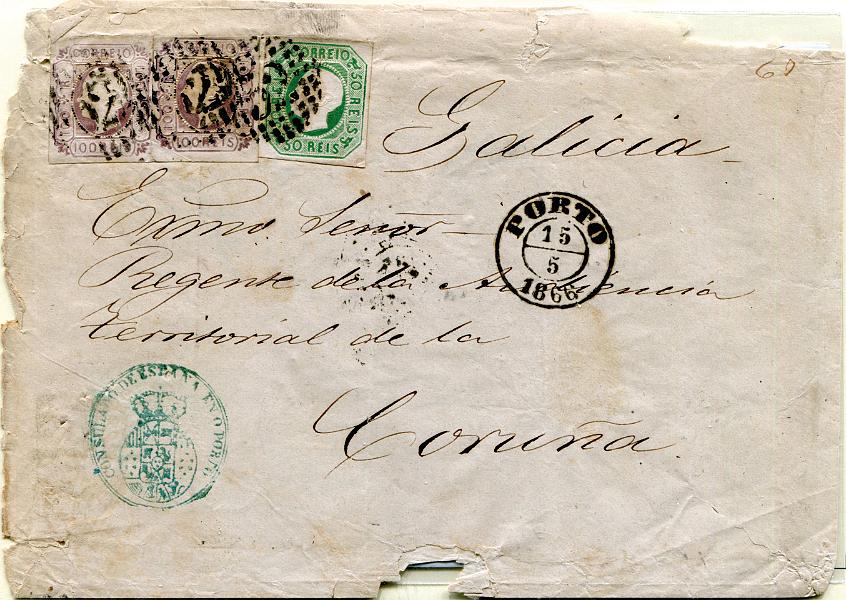 CORREIO CORREIO CORREIO
100 REIS 100 REIS 50 REIS
50 REIS
60
Galicia
Exmo Señor
PORTO
15
5
1866
Regente de la Audiencia
Territorial de la
CONSULADO DE ESPAÑA EN OPORTO
Coruña